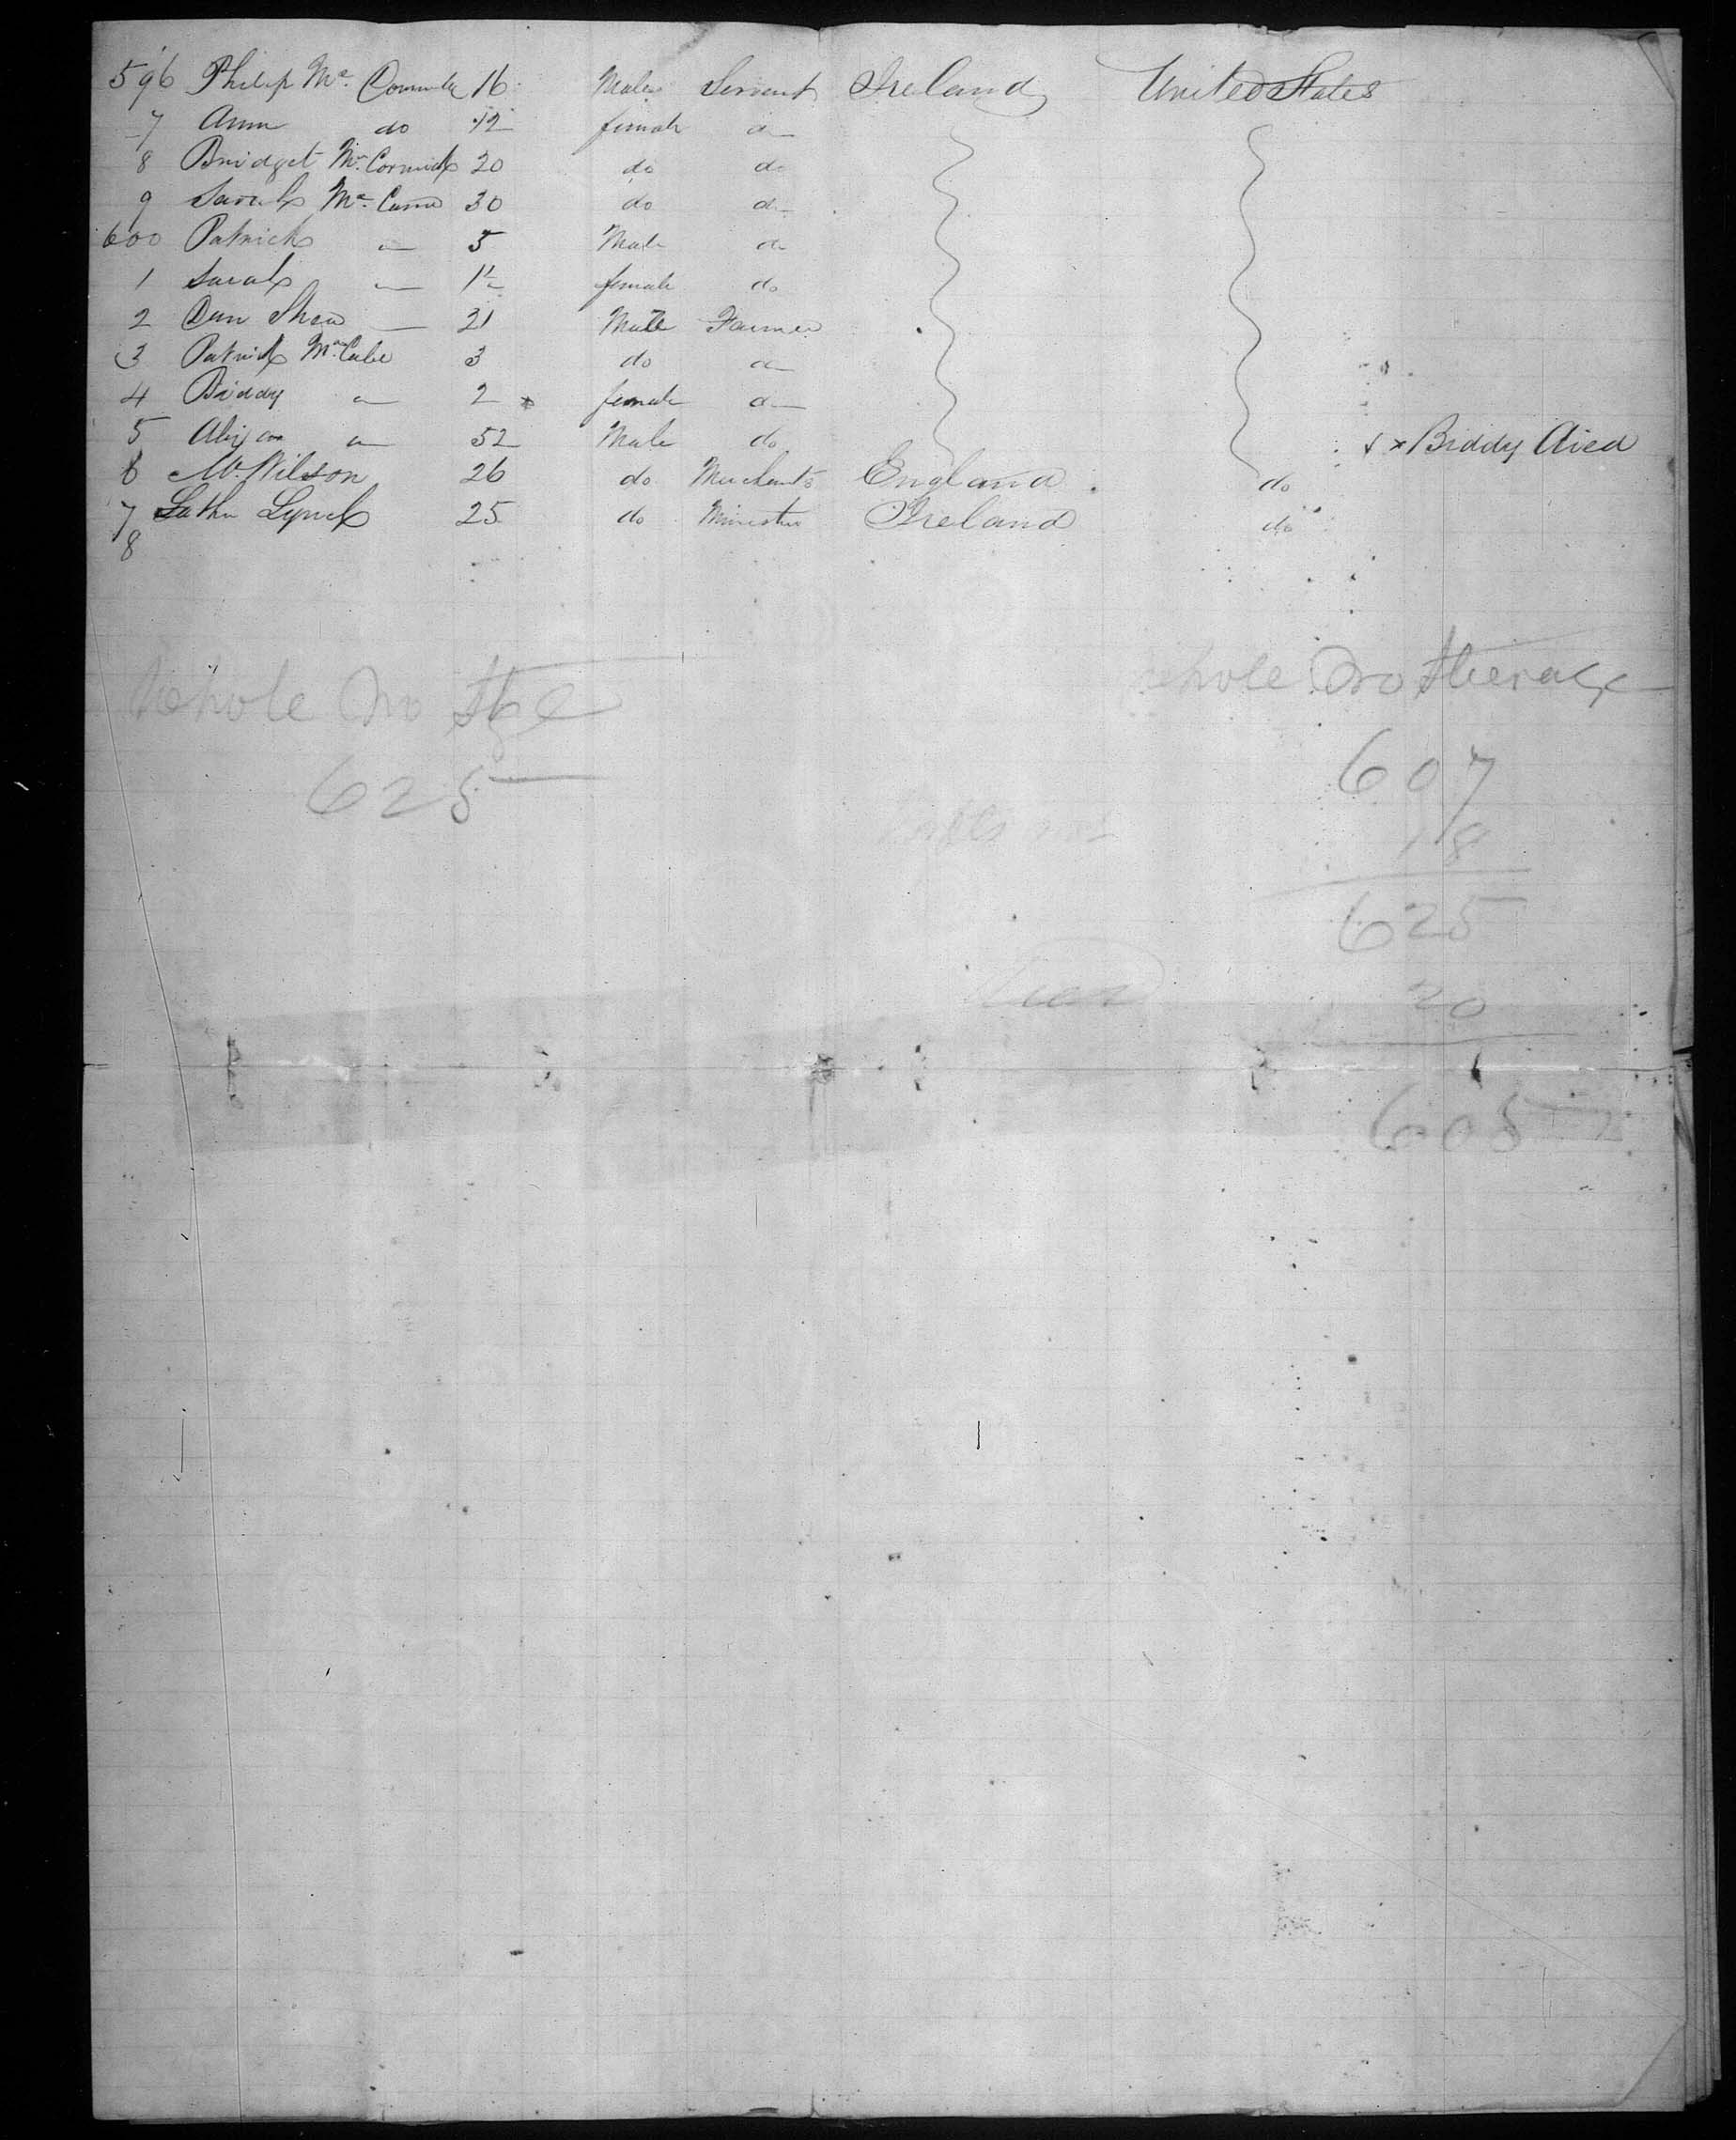 596 Philip Mc 16 Male Servant Ireland United States
7 Ann do 12 female do
8 Bridget McCormick 20 do do
9 Sarah McCann 30 do do
600 Patrick do 5 Male do
1 Sarah do female do
2 Dan Shea 21 Male Farmer
3 Patrick McCabe 3 do do
4 Biddy do 2 x female do
5 do 52 Male do x Biddy died
6 Mr. Wilson 26 do Merchant England do
7 Lynch 25 do Minister Ireland do
8
Whole No Stge
625
Whole No Steerage
607
18
625
20
605